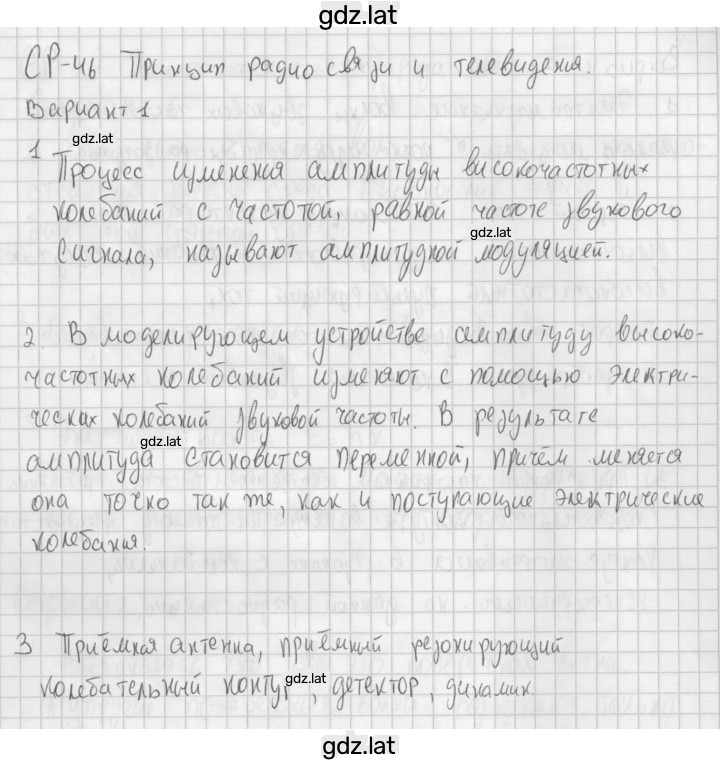 gdz.lat
СР-46 Принцип радиосвязи и телевидения.
Вариант 1
gdz.lat
1 Процесс изменения амплитуды високочастотных
колебаний с частотой, равной частоте звукового
gdz.lat
сигнала, называют амплитудной модуляцией.
2. В моделирующем устройстве амплитуду высоко-
частотных колебаний изменяют с помощью электри-
ческах колебаний звуковой частоты. В результате
gdz.lat
амплитуда становится переменной, причём меняется
она точно так же, как и поступающие электрические
колебания.
3 Приёмная антенна, приёмный резонирующий
колебательный контур, детектор, динамик.
gdz.lat
gdz.lat